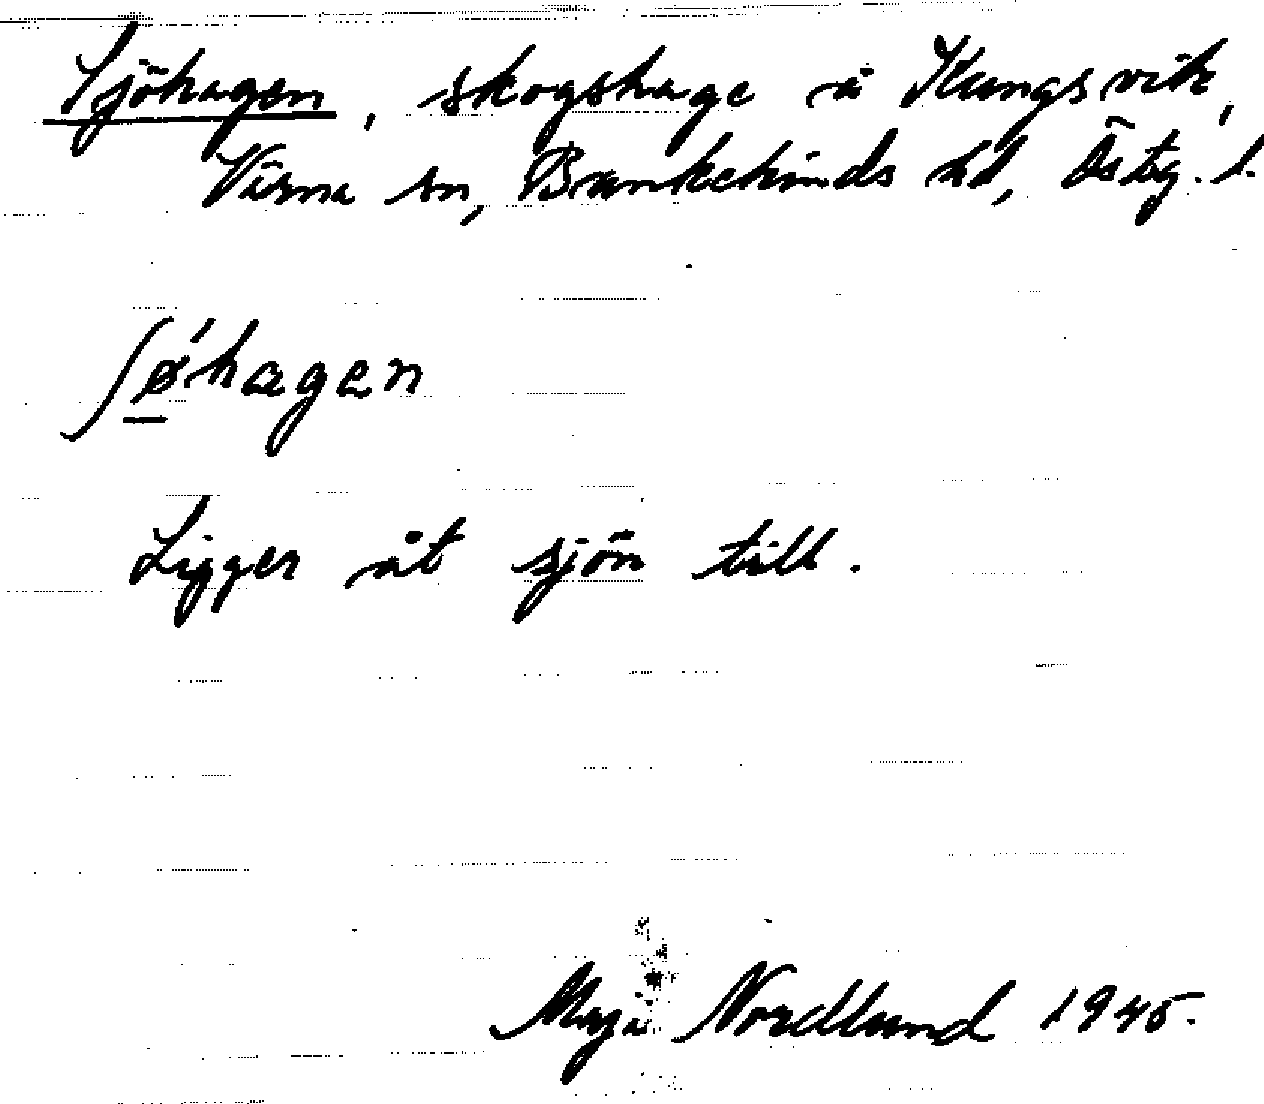 Sjöhagen, skogshage å Kungsvik,
Värna sn, Bankekinds hd, Östg. l.
ʃǿ̱hagen
Ligger åt sjön till.
Maja Nordlund 1945.